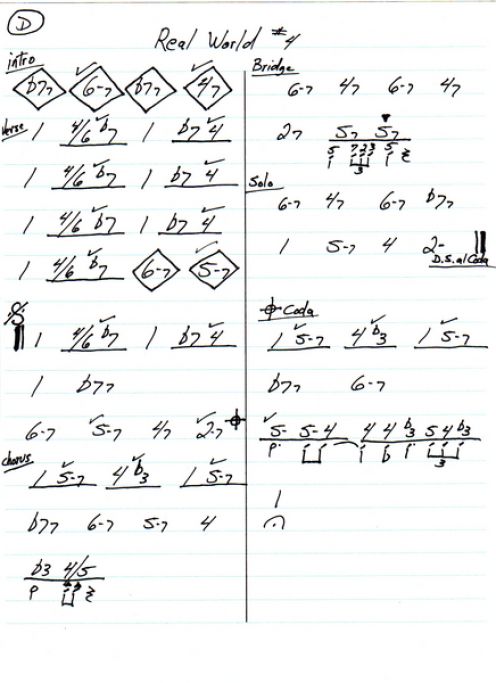 D
Real World #4
intro
b7₇ 6-₇ b7₇ 4₇
Verse 1 4/6 b7 1 b7 4
1 4/6 b7 1 b7 4
1 4/6 b7 1 b7 4
1 4/6 b7 6-₇ 5-₇
1 4/6 b7 1 b7 4
1 b7₇
6-₇ 5-₇ 4₇ 2-₇
Chorus
1 5-₇ 4 b3 1 5-₇
b7₇ 6-₇ 5-₇ 4
b3 4/5
Bridge
6-₇ 4₇ 6-₇ 4₇
2₇ 5₇ 5₇
5 7 2 3 5
3
Solo
6-₇ 4₇ 6-₇ b7₇
1 5-₇ 4 2-
D.S. al Coda
Coda
1 5-₇ 4 b3 1 5-₇
b7₇ 6-₇
5- 5-4 4 4 b3 5 4 b3
3
1